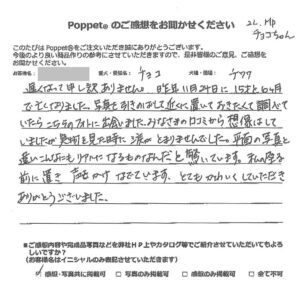 Poppet® のご感想をお聞かせください
2L. HP
チョコちゃん
このたびは Poppet®をご注文いただき誠にありがとうございます。
今後のより良い製品作りの参考にさせていただきますので、是非皆様のご意見、ご感想を
お聞かせください。
お客様名：
愛犬・愛猫名： チョコ
犬種・猫種： チワワ
遅くなって申し訳ありません。昨年11月24日に、15才と6ヶ月
で亡くなりました。写真を引きのばして近くに置いておきたくて調べて
いたらこちらのフォトに出会いました。みなさまの口コミから想像はして
いましたが実物を見た時に涙がとまりませんでした。平面の写真と
違いこんなにもリアルになるものなんだと驚いています。私の座る
前に置き 声をかけなでています。とてもかわいくしていただき
ありがとうございました。
※ご感想内容や完成品写真などを弊社HP上やカタログ等でご紹介させていただいてもよろ
しいですか？
（お客様名はイニシャルのみ表記させていただきます）
感想・写真共に掲載可 □写真のみ掲載可 □感想のみ掲載可 □全て不可